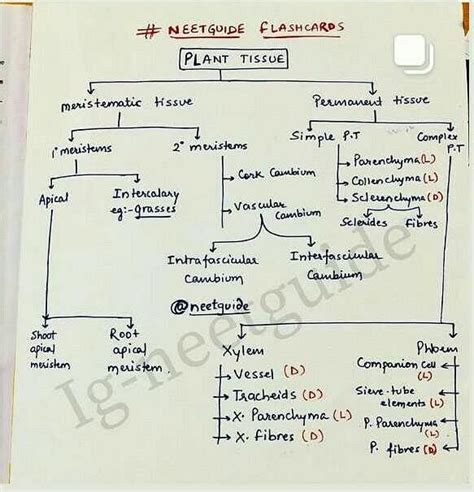 # NEETGUIDE FLASHCARDS
PLANT TISSUE
meristematic tissue
Permanent tissue
1° meristems
2° meristems
Simple P.T
Complex
P.T
Apical
Intercalary
eg:- grasses
→ Cork Cambium
→ Vascular
Cambium
→ Parenchyma (L)
→ Collenchyma (L)
→ Sclerenchyma (D)
Sclerides
Fibres
Intrafascicular
Cambium
Interfascicular
Cambium
@neetguide
Shoot
apical
meristem
Root
apical
meristem
Xylem
→ Vessel (D)
→ Tracheids (D)
→ X. Parenchyma (L)
→ X. fibres (D)
Phloem
Companion cell
(L)
Sieve-tube
elements (L)
P. Parenchyma
(L)
P. fibres (D)
Ig-neetguide